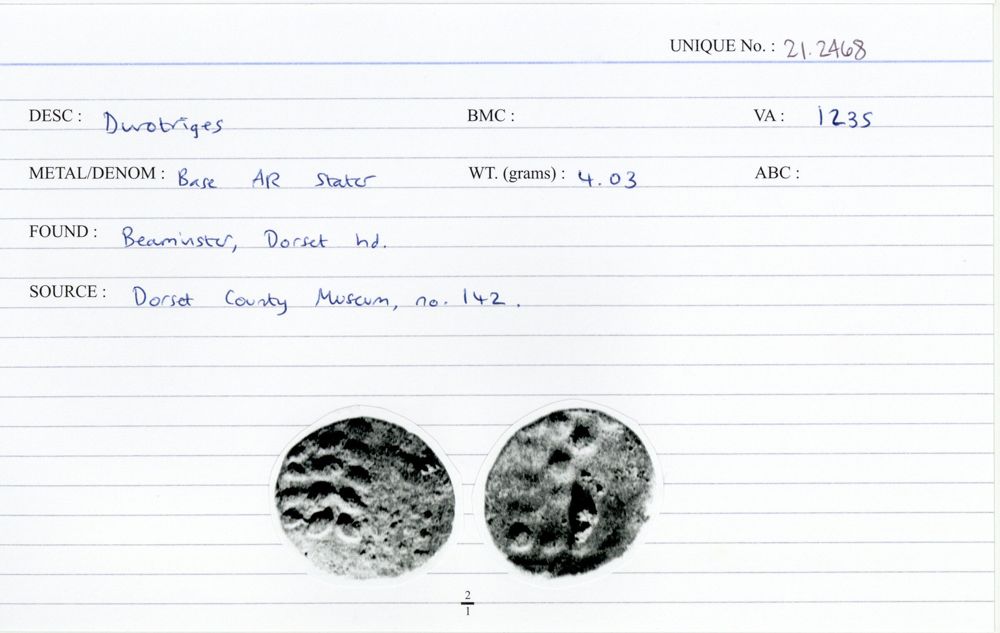 UNIQUE No. : 21.2468
DESC : Durotriges BMC : VA : 1235
METAL/DENOM : Base AR Stater WT. (grams) : 4.03 ABC :
FOUND : Beaminster, Dorset hd.
SOURCE : Dorset County Museum, no. 142.
2
1